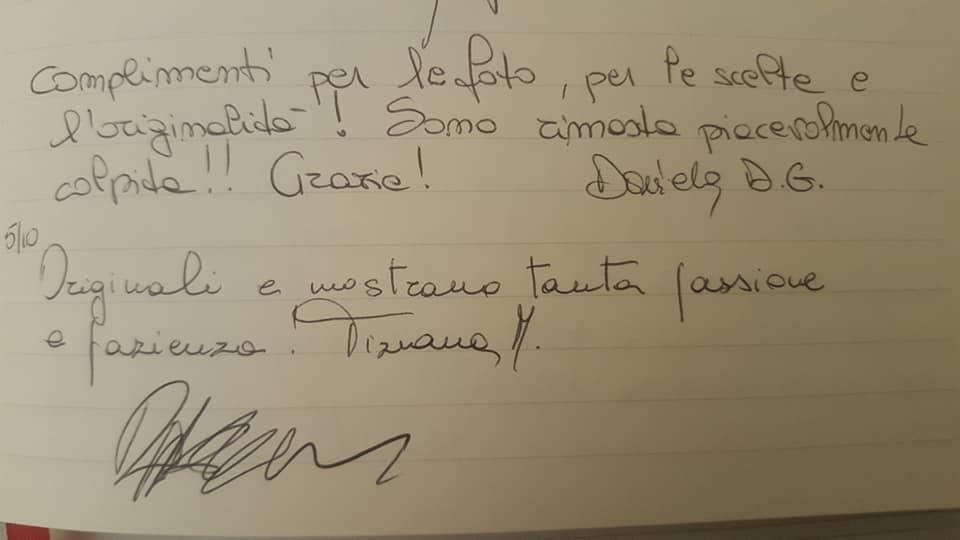 Complimenti per le foto, per le scelte e
l'originalità! Sono rimasta piacevolmente
colpita!! Grazie! Daniela D.G.
5/10
Originali e mostrano tanta passione
e pazienza. Tiziana M.